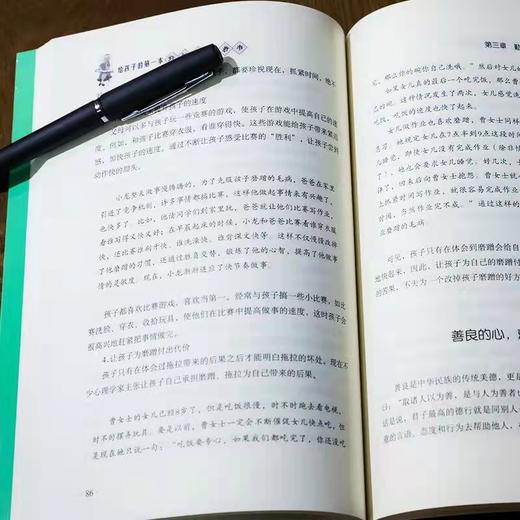 给孩子的第一本
教
书
都要珍视现在，抓紧时间，绝不
孩子的速度
父母可以多与孩子玩一些竞赛的游戏，使孩子在游戏中提高自己的速
度，如，和孩子比赛穿衣服，看谁穿得快。这些游戏能给孩子带来紧
感，加快孩子的速度。通过不断让孩子感受比赛的“胜利”，让孩子尝到
动作快的甜头。
小龙整天做事慢腾腾的，为了克服孩子磨蹭的毛病，爸爸在家里
引进了竞争机制，许多事情都搞比赛，这样他做起事情来有兴趣了，
也快多了。比如，他请同学们到家里玩，爸爸就让他们比赛写作业，
看谁写得又快又好；在早晨起来的时候，小龙和爸爸比赛看谁穿衣服
快，还比赛谁刷牙快、谁洗澡快、谁背课文快等。这样不仅慢慢改掉
了他磨蹭的习惯，还通过胜负交替，锻炼了他的心智，提高了他做事
情的灵敏度。现在，小龙渐渐适应了快节奏做事。
孩子都喜欢比赛游戏，喜欢当第一。经常与孩子搞一些小比赛，如比
赛洗脸、穿衣、收拾玩具，使他们在比赛中提高做事的速度，这时孩子会
很高兴地赶紧把事情做完。
4.让孩子为磨蹭付出代价
孩子只有在体会过拖拉带来的后果之后才能明白拖拉的坏处。现在不
少心理学家主张让孩子自己承担磨蹭、拖拉为自己带来的后果。
曹女士的女儿已经8岁了，但是吃饭很慢，时不时跑去看电视，
时不时摆弄玩具。要是以前，曹女士一定会不断催促女儿快点吃，但
是现在她只说一句：“吃饭要专心，如果我们都吃完了，你还没吃
86
第三章
么，那么你的碗你自己洗哦。”然后对女儿
如果女儿真的最后一个吃完饭，曹女士
己的碗。这种情况发生了两次，女儿感觉洗
，吃饭的速度也快了起来。
女儿做作业也喜欢磨蹭。曹女士让
。她规定女儿在7点半到9点这段时
，即使女儿没有完成作业（除非情
），她也要求女儿睡觉。好几次，
评了，因来后向曹女士抱怨，曹女士
抓紧时间写作业，就很容易完成作业
会，当然作业完不成。”通过这样的
业磨蹭的毛病。
可见，孩子只有在体会到磨蹭会给自
地快起来，因此，让孩子为自己的磨蹭
的苦果，不失为一个改掉孩子磨蹭的好方
善良的心，
善良是中华民族的传统美德，更是
曰：“取诸人以为善，是与人为善者也
话是说，君子最高的德行就是同别人
意的言语、态度和行为去帮助他人，